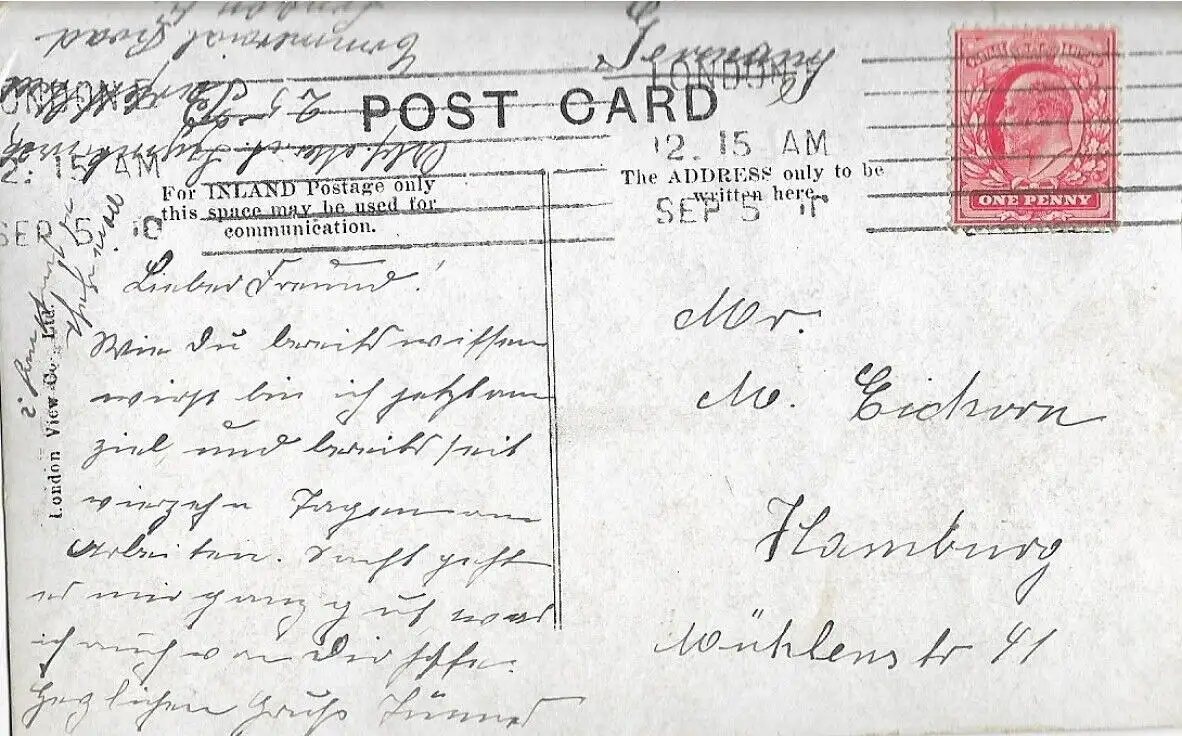 POST CARD
For INLAND Postage only
this space may be used for
communication.
The ADDRESS only to be
written here.
LONDON
12. 15 AM
SEP 5 10
LONDON
2. 15 AM
SEP 5 10
ONE PENNY
Germany
Lieber Freund!
Wie du bereits wissen
wirst bin ich jetzt am
Ziel, und bereits seit
vierzehn Tagen am
Arbeiten. Sonst geht
es mir ganz gut, was
ich auch von Dir hoffe.
Herzlichen Gruß
Mr.
M. Eichorn
Hamburg
Mühlenstr 41
London View Co., Ltd.
Road
London